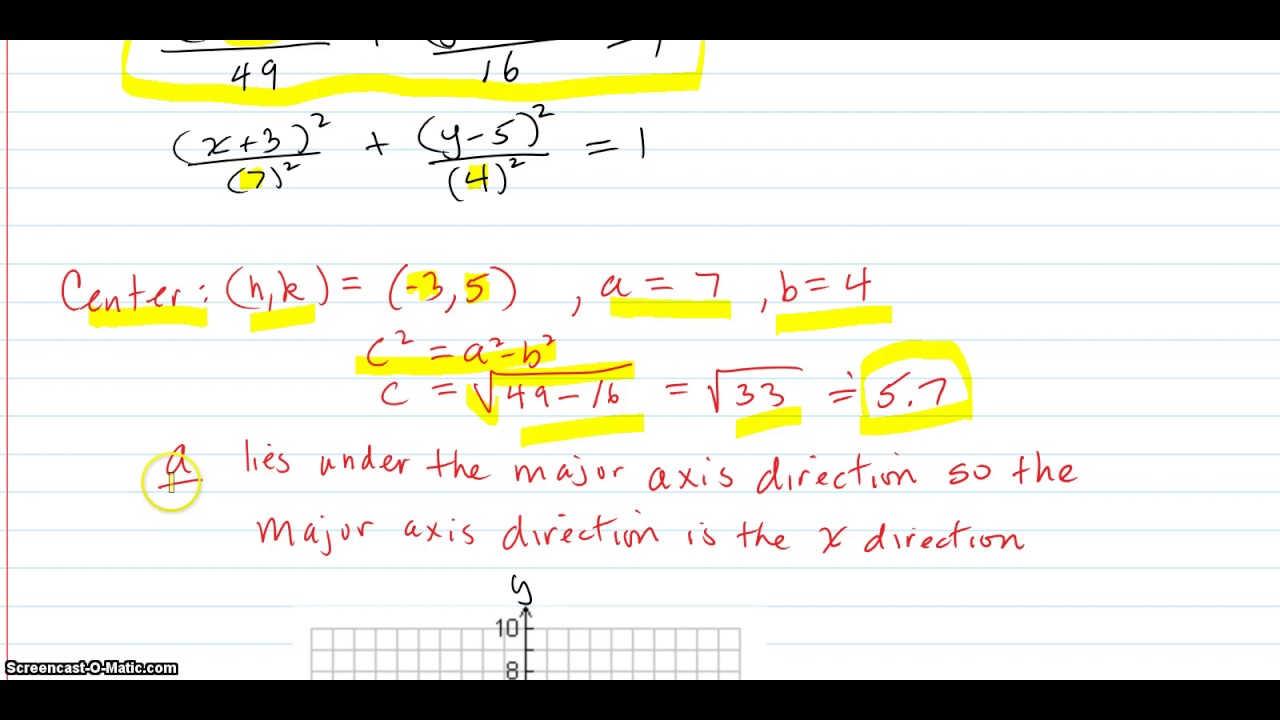 49 16 = 1
(x+3)² + (y-5)² = 1
(7)² (4)²
Center: (h,k) = (-3,5) , a = 7 , b = 4
c² = a² - b²
c = √49-16 = √33 ≐ 5.7
a lies under the major axis direction so the
major axis direction is the x direction
y
10
8
Screencast-O-Matic.com